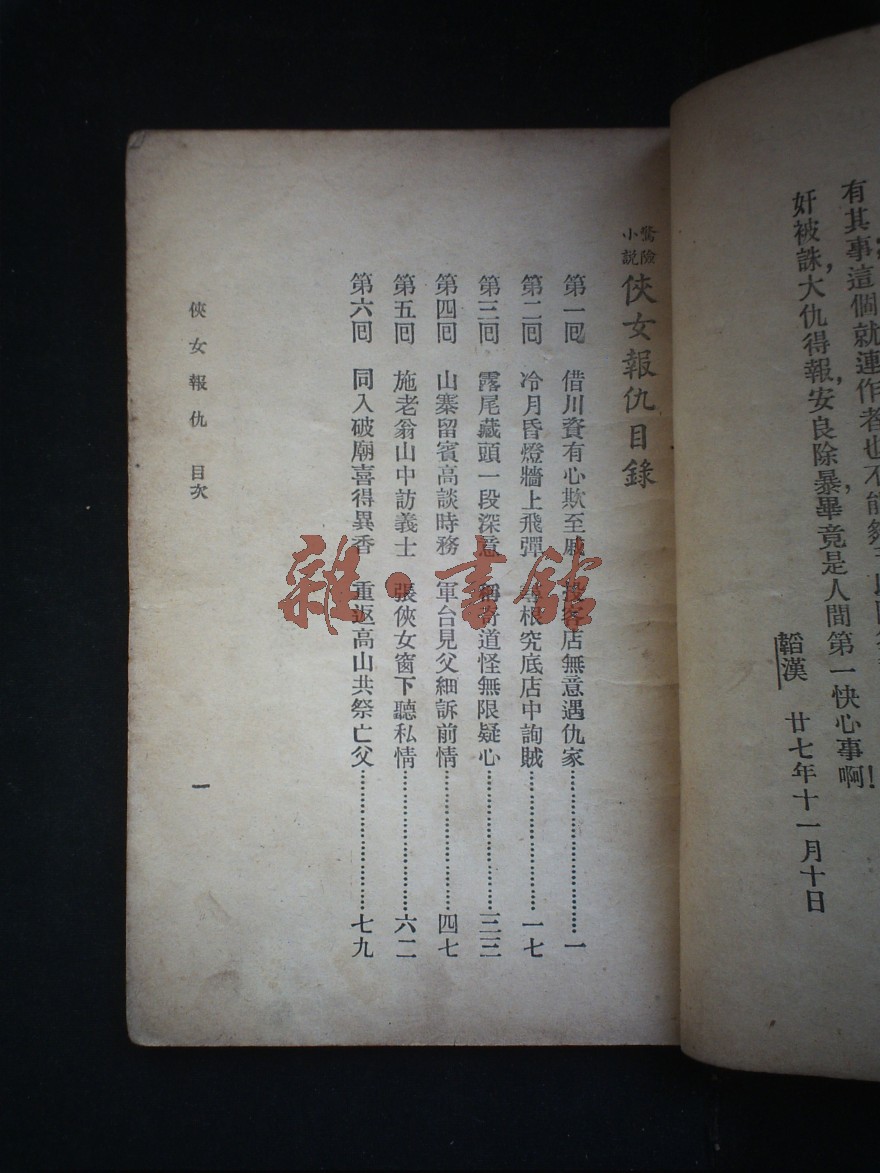 有其事這個就連作者也不能夠
奸被誅，大仇得報，安良除暴，畢竟是人間第一快心事啊！
韜漢　廿七年十一月十日
驚險小說　俠女報仇目錄
第一回　借川資有心欺至戚　投客店無意遇仇家……一
第二回　冷月昏燈牆上飛彈　尋根究底店中詢賊……一七
第三回　露尾藏頭一段深意　稱奇道怪無限疑心……三三
第四回　山寨留賓高談時務　軍台見父細訴前情……四七
第五回　施老翁山中訪義士　張俠女窗下聽私情……六二
第六回　同入破廟喜得異香　重返高山共祭亡父……七九
俠女報仇　目次
一
雜·書館